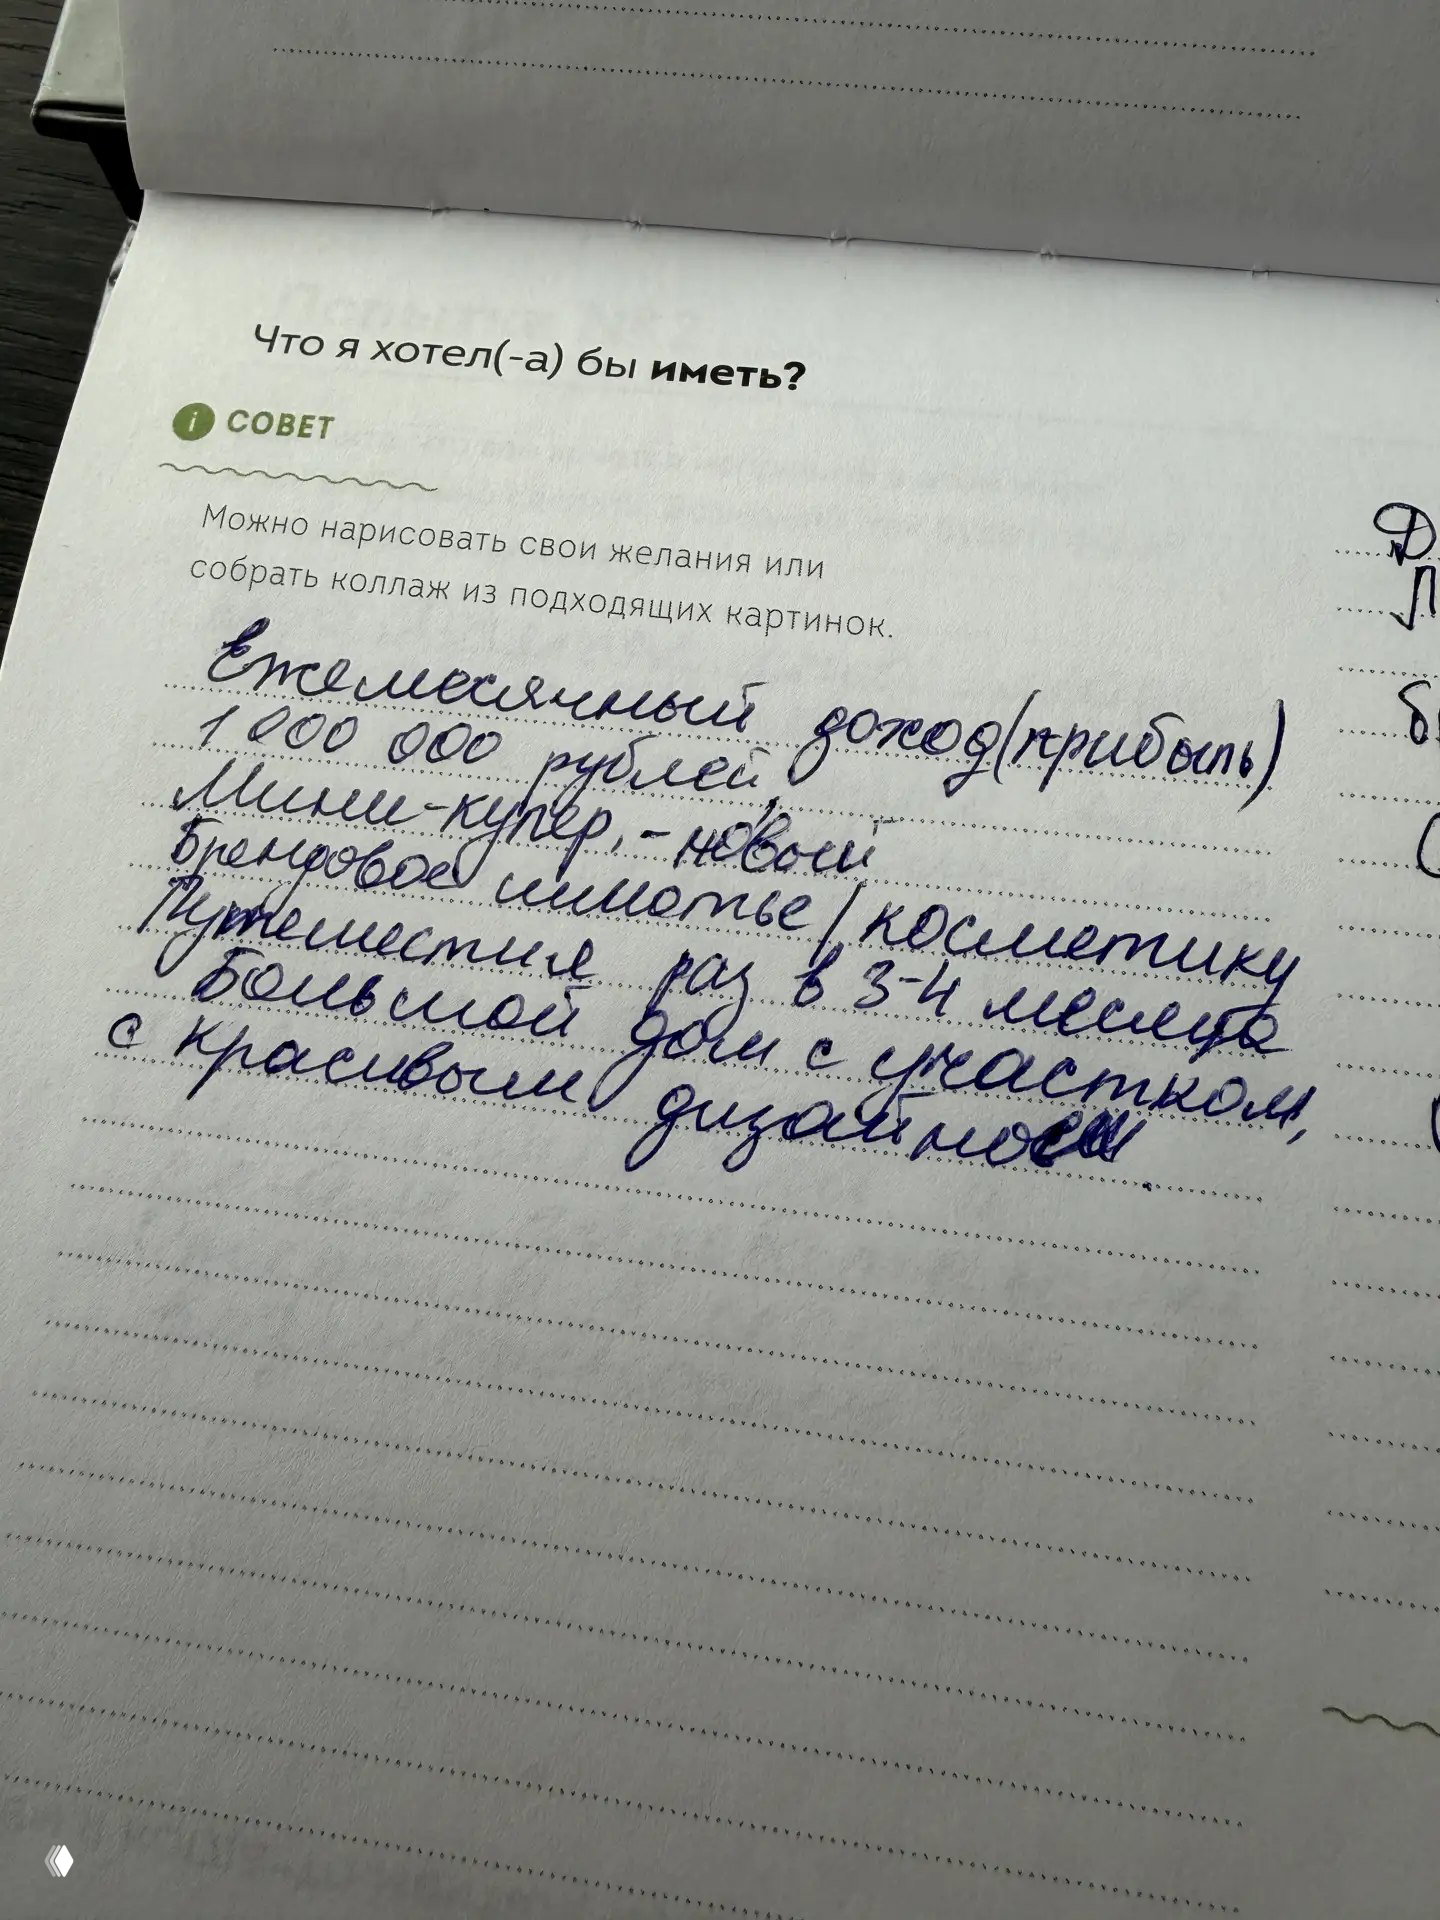 Что я хотел(-а) бы иметь?
i СОВЕТ
Можно нарисовать свои желания или
собрать коллаж из подходящих картинок.
Ежемесячный доход (прибыль)
1 000 000 рублей,
Мини-купер, - новый
Брендовое шмотье / косметику
Путешествия раз в 3-4 месяца
Большой дом с участком,
с красивым дизайном.